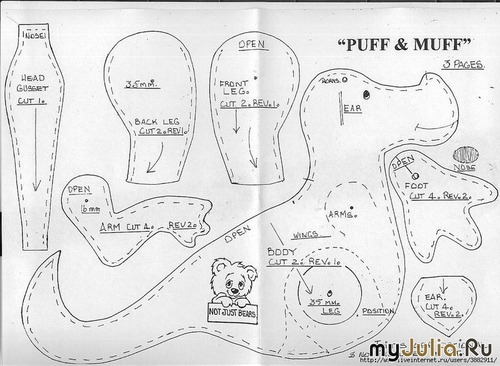 "PUFF & MUFF"
3 PAGES.
NOSE
HEAD
GUSSET
CUT 1.
3.5mm.
BACK LEG
CUT 2. REV. 1.
OPEN
FRONT
LEG.
CUT 2. REV. 1.
HORNS.
EAR
OPEN
NOSE
FOOT
CUT 4. REV. 2.
OPEN
6mm
ARM CUT 4. REV. 2.
OPEN
ARMS.
WINGS
BODY
CUT 2. REV. 1.
35 mm.
LEG
POSITION
EAR.
CUT 4.
REV. 2.
NOT JUST BEARS
myJulia.Ru